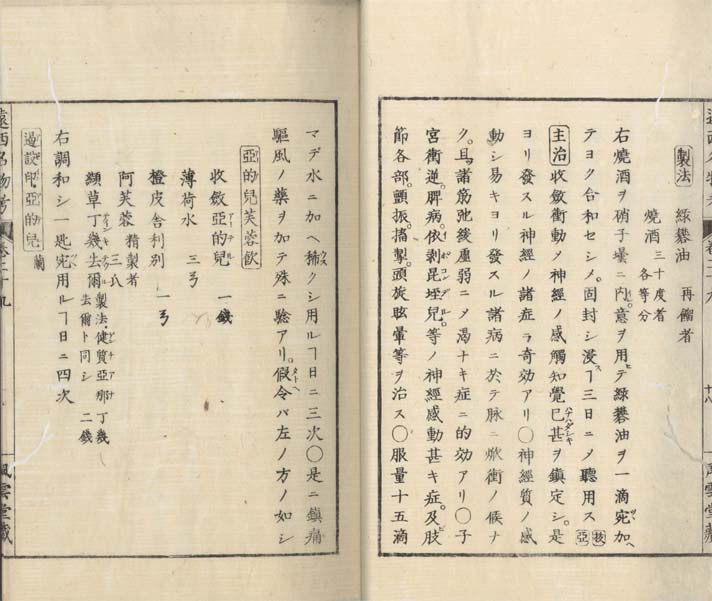 製法 綠礬油 再餾者
燒酒 三十度者 各等分
右燒酒ヲ硝子壜ニ内。意ヲ用テ綠礬油ヲ一滴宛加ヘ
テヨク合和セシメ。固封シ浸スヿ三日ニメ聽用ス 核 亞
主治 收斂衝動メ神經ノ感觸知覺已甚ヲ鎮定シ。是
ヨリ發スル神經ノ諸症ラ奇効アリ〇神經質ノ感
動シ易キヨリ發スル諸病ニ於テ脉ニ焮衝ノ候ナ
ク。且諸筋弛緩虛弱ニメ渴ナキ症ニ的効アリ〇子
宮衝逆。脾病。依剥昆垤兒。等ノ神經感動甚キ症。及肢
節各部。顫振。搐掣。頭旋眩暈等ヲ治ス〇服量十五滴
マデ水ニ加ヘ稀クシ用ルヿ日ニ三次〇是ニ鎮痛
驅風ノ藥ヲ加テ殊ニ驗アリ。假令バ左ノ方ノ如シ
亞的兒芙蓉飲
收斂亞的兒 一錢
薄荷水 三弓
橙皮舎利別 一弓
阿芙蓉 精製者 三八
纈草丁幾去爾 製法。健質亞那丁幾去爾ト同シ 二錢
右調和シ一匙宛用ルヿ日ニ四次
亞的兒 蘭
遠西名物考
卷二十九
十八
風雲堂藏